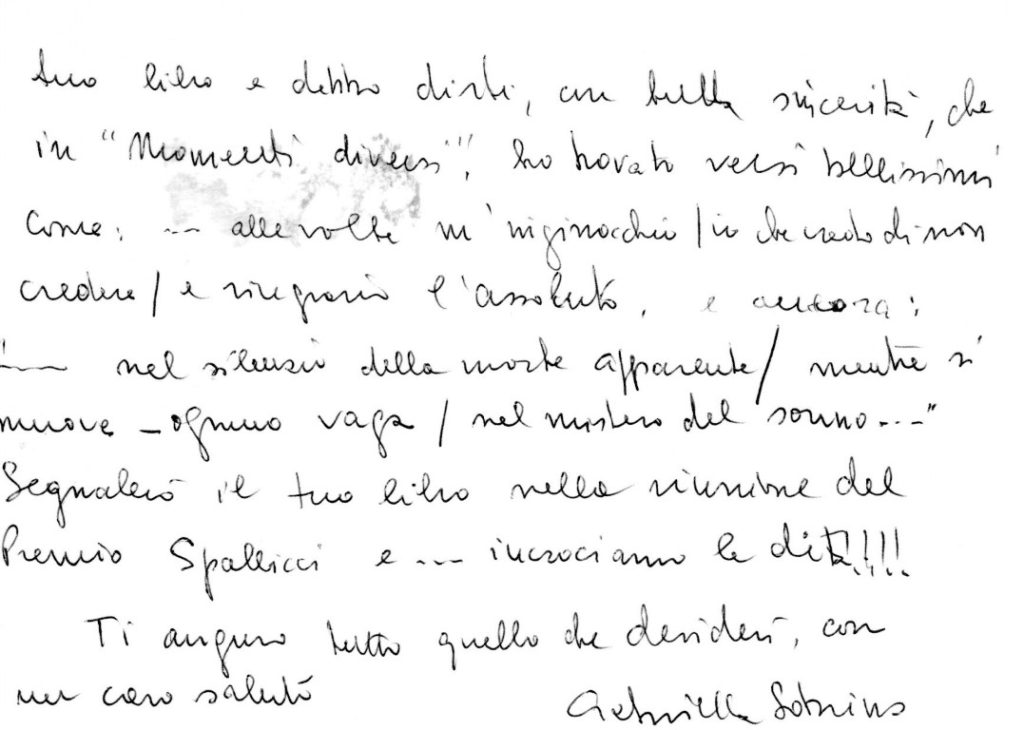 tuo libro e debbo dirti, con tutta sincerità, che
in "Momenti diversi", ho trovato versi bellissimi
come: ... alle volte m'inginocchio / io che credo di non
credere / e ringrazio l'assoluto, e ancora:
"... nel silenzio della morte apparente / mentre si
muove - ognuno vaga / nel mistero del sonno..."
Segnalerò il tuo libro nella riunione del
Premio Spallicci e ... incrociamo le dita!!!!
Ti auguro tutto quello che desideri, con
un caro saluto
Gabriella Sobrino